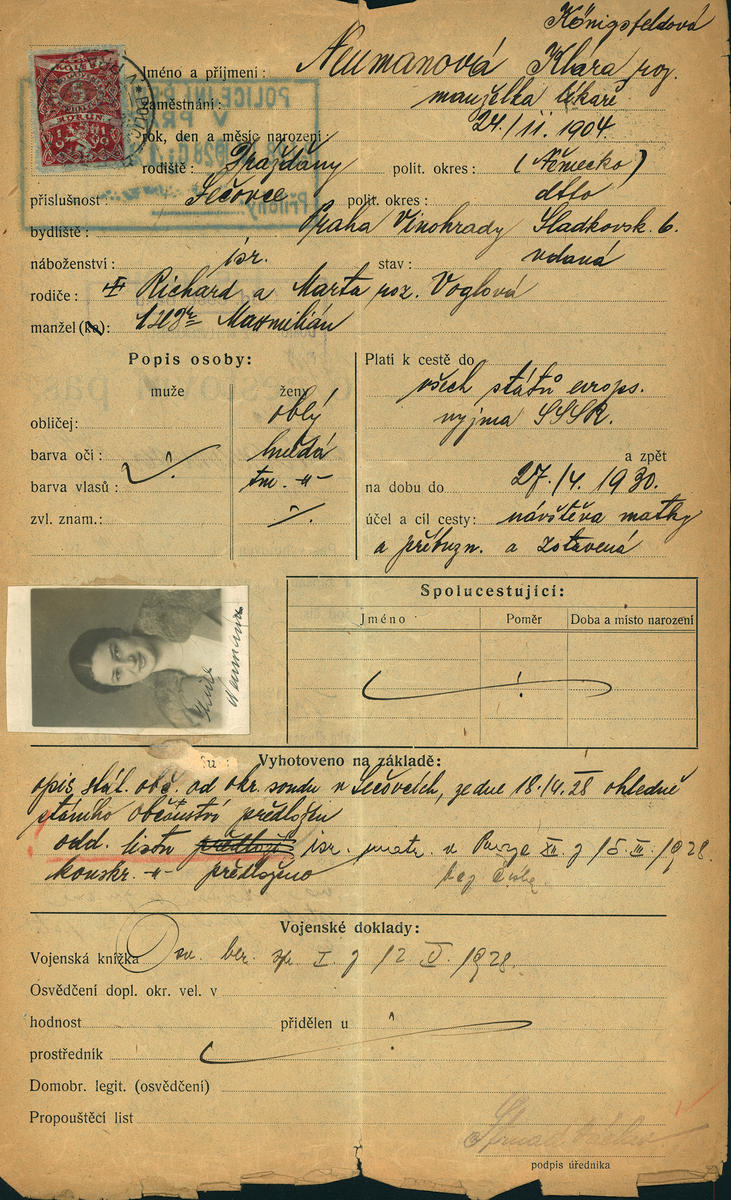 Königsfeldová
Jméno a příjmení: Neumanová Klára roz.
zaměstnání: manželka lékaře
rok, den a měsíc narození: 24/II. 1904.
rodiště: Draždány polit. okres: (Německo)
příslušnost: Sečovce polit. okres: dtto
bydliště: Praha Vinohrady Sladkovsk. 6.
náboženství: isr. stav: vdaná
rodiče: Richard a Marta roz. Voglová
manžel (ka): Maxmilián
Popis osoby:
muže ženy
obličej: oblý
barva očí: hnědá
barva vlasů: tm. -"-
zvl. znam.: /.
Platí k cestě do
všech států evrops.
vyjma SSSR.
a zpět
na dobu do 27./4. 1930.
účel a cíl cesty: návštěva matky
a příbuzn. a zotavená
Spolucestující:
Jméno Poměr Doba a místo narození
Neumanová
Vyhotoveno na základě:
opis stál. obč. od okr. soudu v Sečovcích, ze dne 18./4. 28 ohledně
státního občanství předložen
odd. listu isr. matr. v Praze XII. 15. III. 1928.
konskr. -"- předloženo
Vojenské doklady:
Vojenská knížka I. 12 V. 1928.
Osvědčení dopl. okr. vel. v
hodnost přidělen u
prostředník
Domobr. legit. (osvědčení)
Propouštěcí list
podpis úředníka